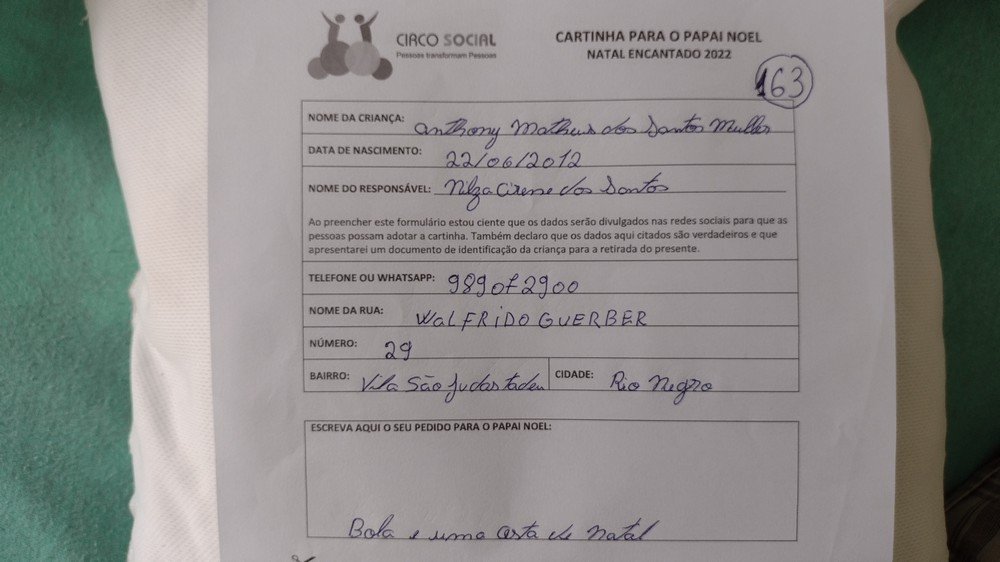 CIRCO SOCIAL
Pessoas transformam Pessoas
CARTINHA PARA O PAPAI NOEL
NATAL ENCANTADO 2022
163
NOME DA CRIANÇA: Anthony Matheus dos Santos Muller
DATA DE NASCIMENTO: 22/06/2012
NOME DO RESPONSÁVEL: Nilza Cirene dos Santos
Ao preencher este formulário estou ciente que os dados serão divulgados nas redes sociais para que as
pessoas possam adotar a cartinha. Também declaro que os dados aqui citados são verdadeiros e que
apresentarei um documento de identificação da criança para a retirada do presente.
TELEFONE OU WHATSAPP: 989072900
NOME DA RUA: WALFRIDO GUERBER
NÚMERO: 29
BAIRRO: Vila São Judas tadeu CIDADE: Rio Negro
ESCREVA AQUI O SEU PEDIDO PARA O PAPAI NOEL:
Bola e uma cesta de natal